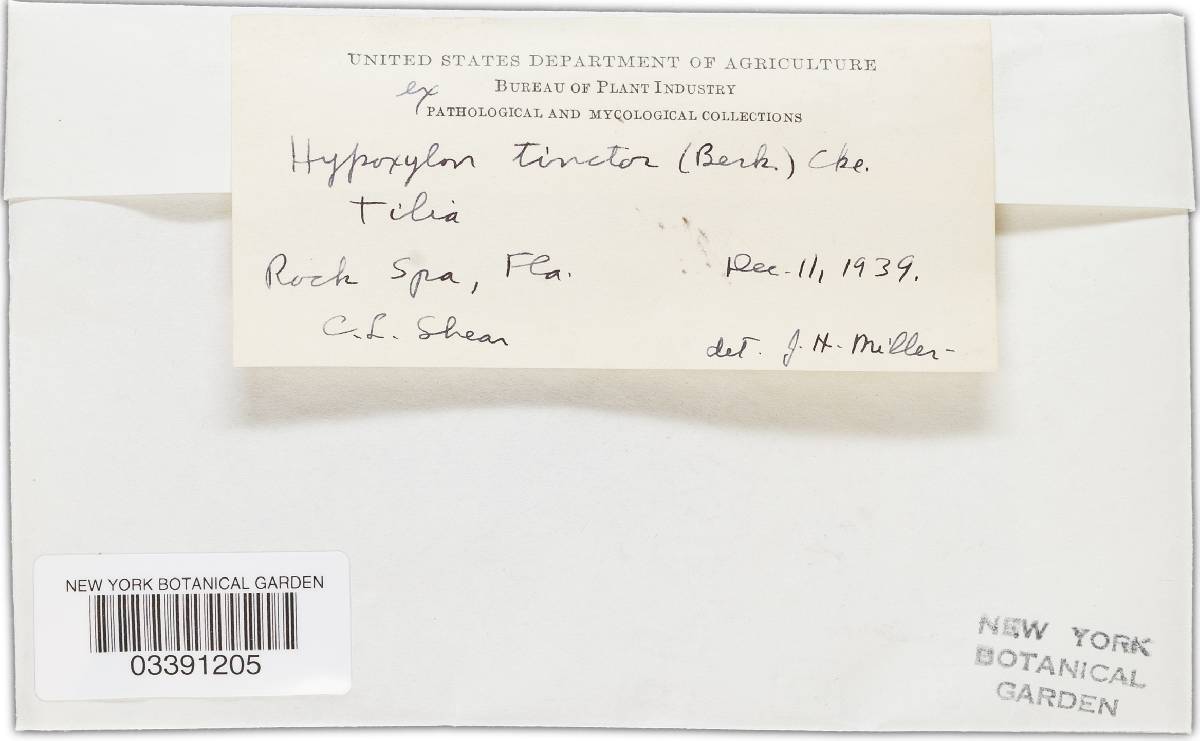 UNITED STATES DEPARTMENT OF AGRICULTURE
BUREAU OF PLANT INDUSTRY
ex
PATHOLOGICAL AND MYCOLOGICAL COLLECTIONS
Hypoxylon tinctor (Berk.) Cke.
Tilia
Rock Spa, Fla. Dec. 11, 1939.
C. L. Shear
det. J. H. Miller-
NEW YORK BOTANICAL GARDEN
03391205
NEW YORK
BOTANICAL
GARDEN